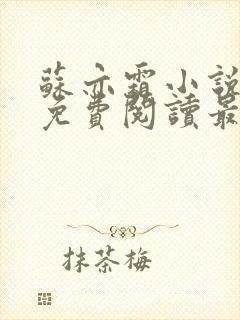 蘇亦霜小說
免費閱讀最
抹茶梅